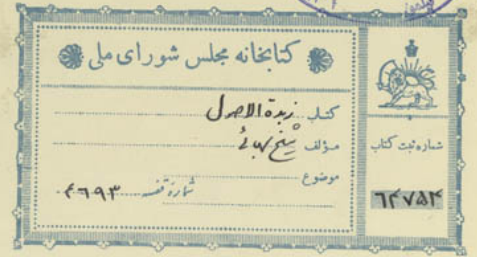 کتابخانه مجلس شورای ملی
کتاب زبدة الاصول
مؤلف شیخ بهائی
موضوع
شمارهٔ قفسه ۴۶۹۳
شماره ثبت کتاب
۶۴۷۵۴